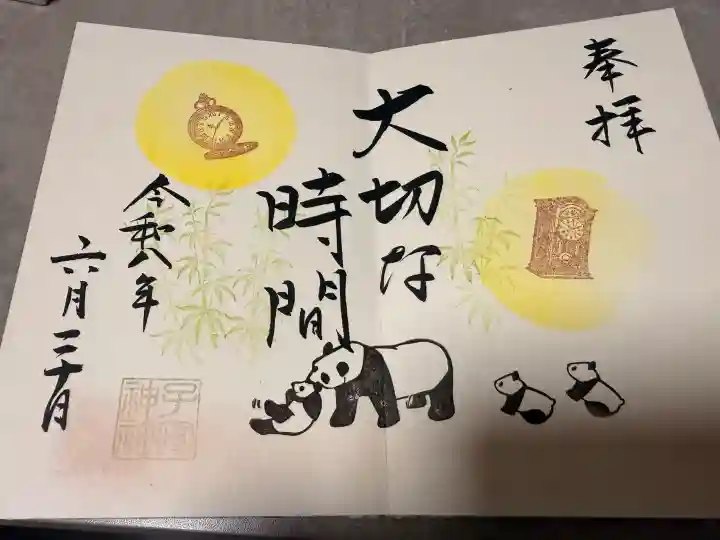 奉拝
大切な
時間
令和八年
六月二十日
神社